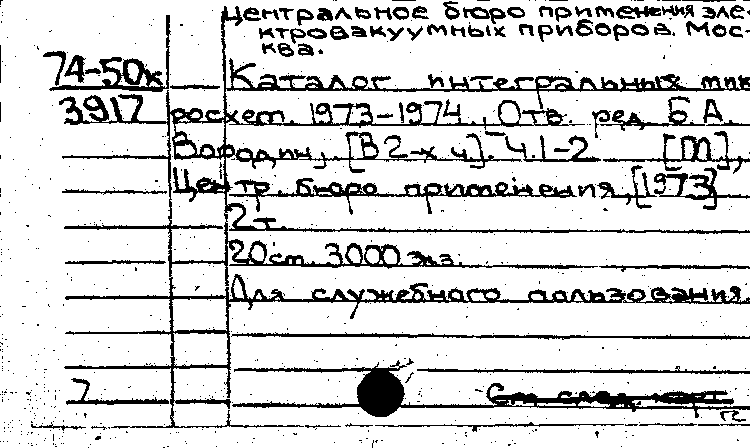 Центральное бюро применения эле-
ктровакуумных приборов. Мос-
ква.
74-50к Каталог интегральных мик
3917 росхем. 1973-1974. Отв. ред. Б.А.
Бородин, [В 2-х ч]. Ч.1-2 [М],
Центр. бюро применения, [1973]
2т.
20см. 3000 экз.
Для служебного пользования.
7 См след. карт.